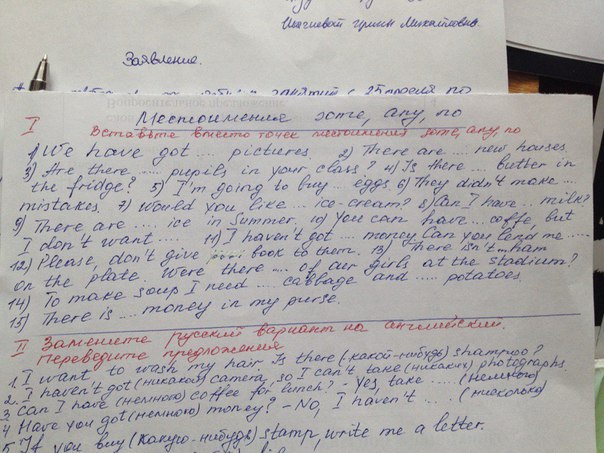 Инчиевой Ирине Михайловне.
Заявление.
занятий с 25
I Местоимения some, any, no
Вставьте вместо точек местоимения some, any, no
1) We have got ... pictures 2) There are ... new houses
3) Are there .... pupils in your class? 4) Is there ... butter in
the fridge? 5) I'm going to buy ... eggs 6) They didn't make ...
mistakes 7) Would you like ... ice-cream? 8) Can I have .. milk?
9) There are .... ice in summer. 10) You can have ... coffe, but
I don't want ..... 11) I haven't got .... money Can you lend me ----
12) Please, don't give book to them. 13) There isn't ... ham
on the plate. Were there .... of our girls at the stadium?
14) To make soup I need .... cabbage and ..... potatoes.
15) There is ... money in my purse.
II Замените русский вариант на английский.
Переведите предложения
1. I want to wash my hair. Is there (какой-нибудь) shampoo?
2. I haven't got (никакой) camera, so I can't take (никаких) photographs
3 Can I have (немного) coffee for lunch? - Yes, take ..... (немного)
4 Have you got (немного) money? - No, I haven't ... (нисколько)
5 If you buy (какую-нибудь) stamp, write me a letter.